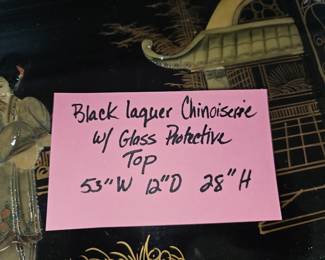 Black Laquer Chinoiserie
w/ Glass Protective
Top
53"W 12"D 28"H